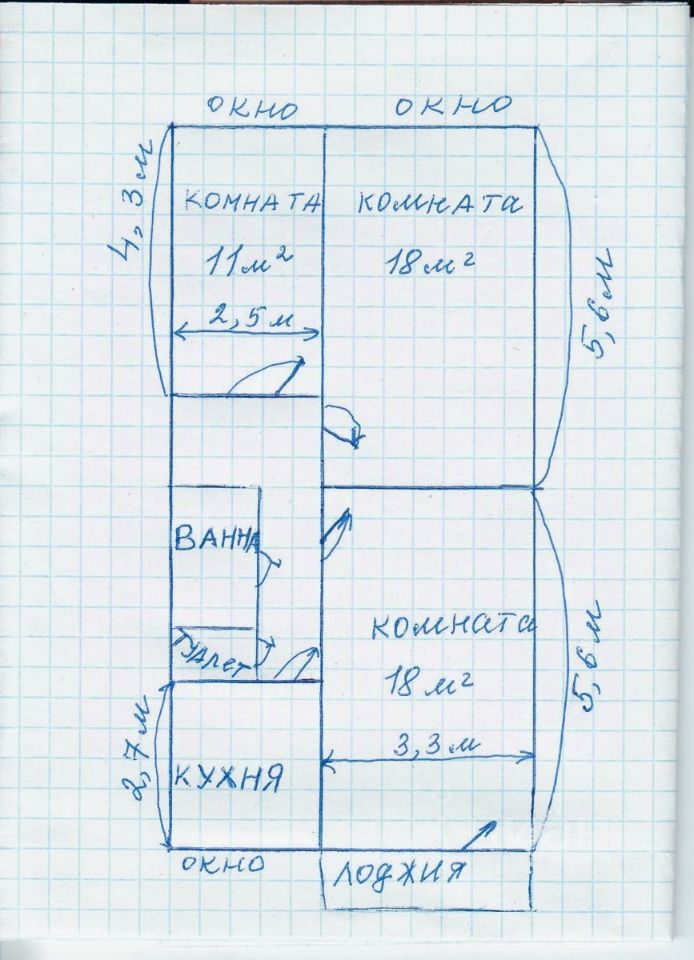 ОКНО
ОКНО
4,3м
КОМНАТА
11м²
2,5м
КОМНАТА
18м²
5,6м
ВАННА
ТУАЛЕТ
КОМНАТА
18м²
3,3м
5,6м
2,7м
КУХНЯ
ОКНО
ЛОДЖИЯ